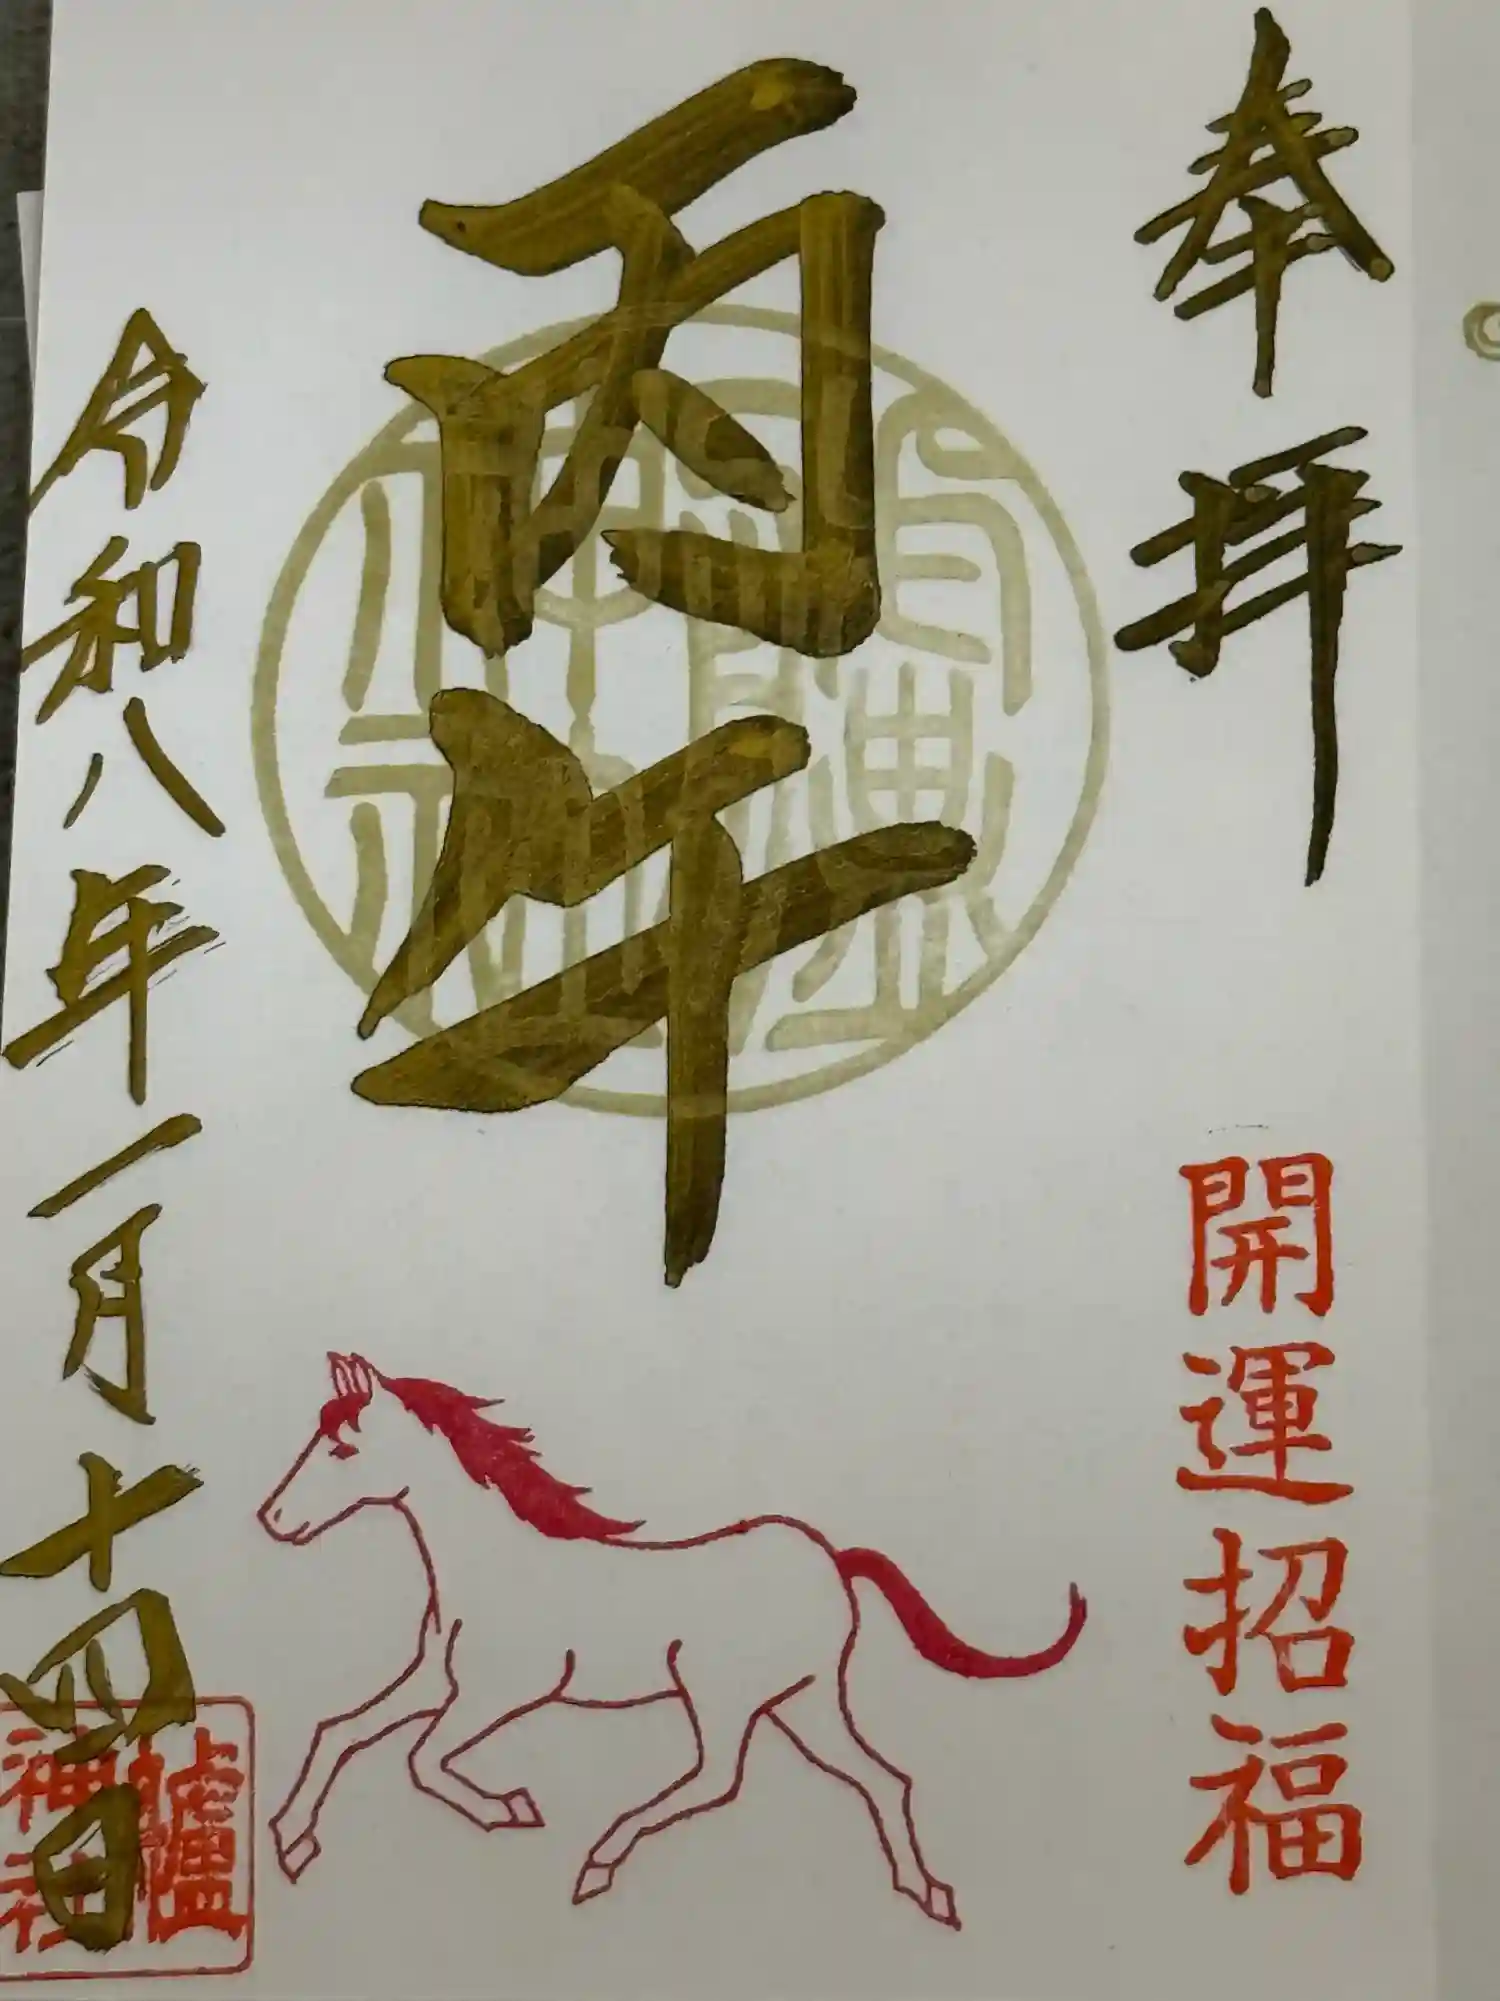 奉拝
開運招福
丙午
令和八年一月十四日
櫨神社